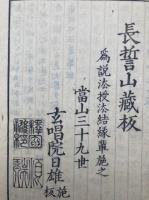 長誓山藏板
為説法授法結縁輩施之
當山三十九世
玄唱院日雄
施板